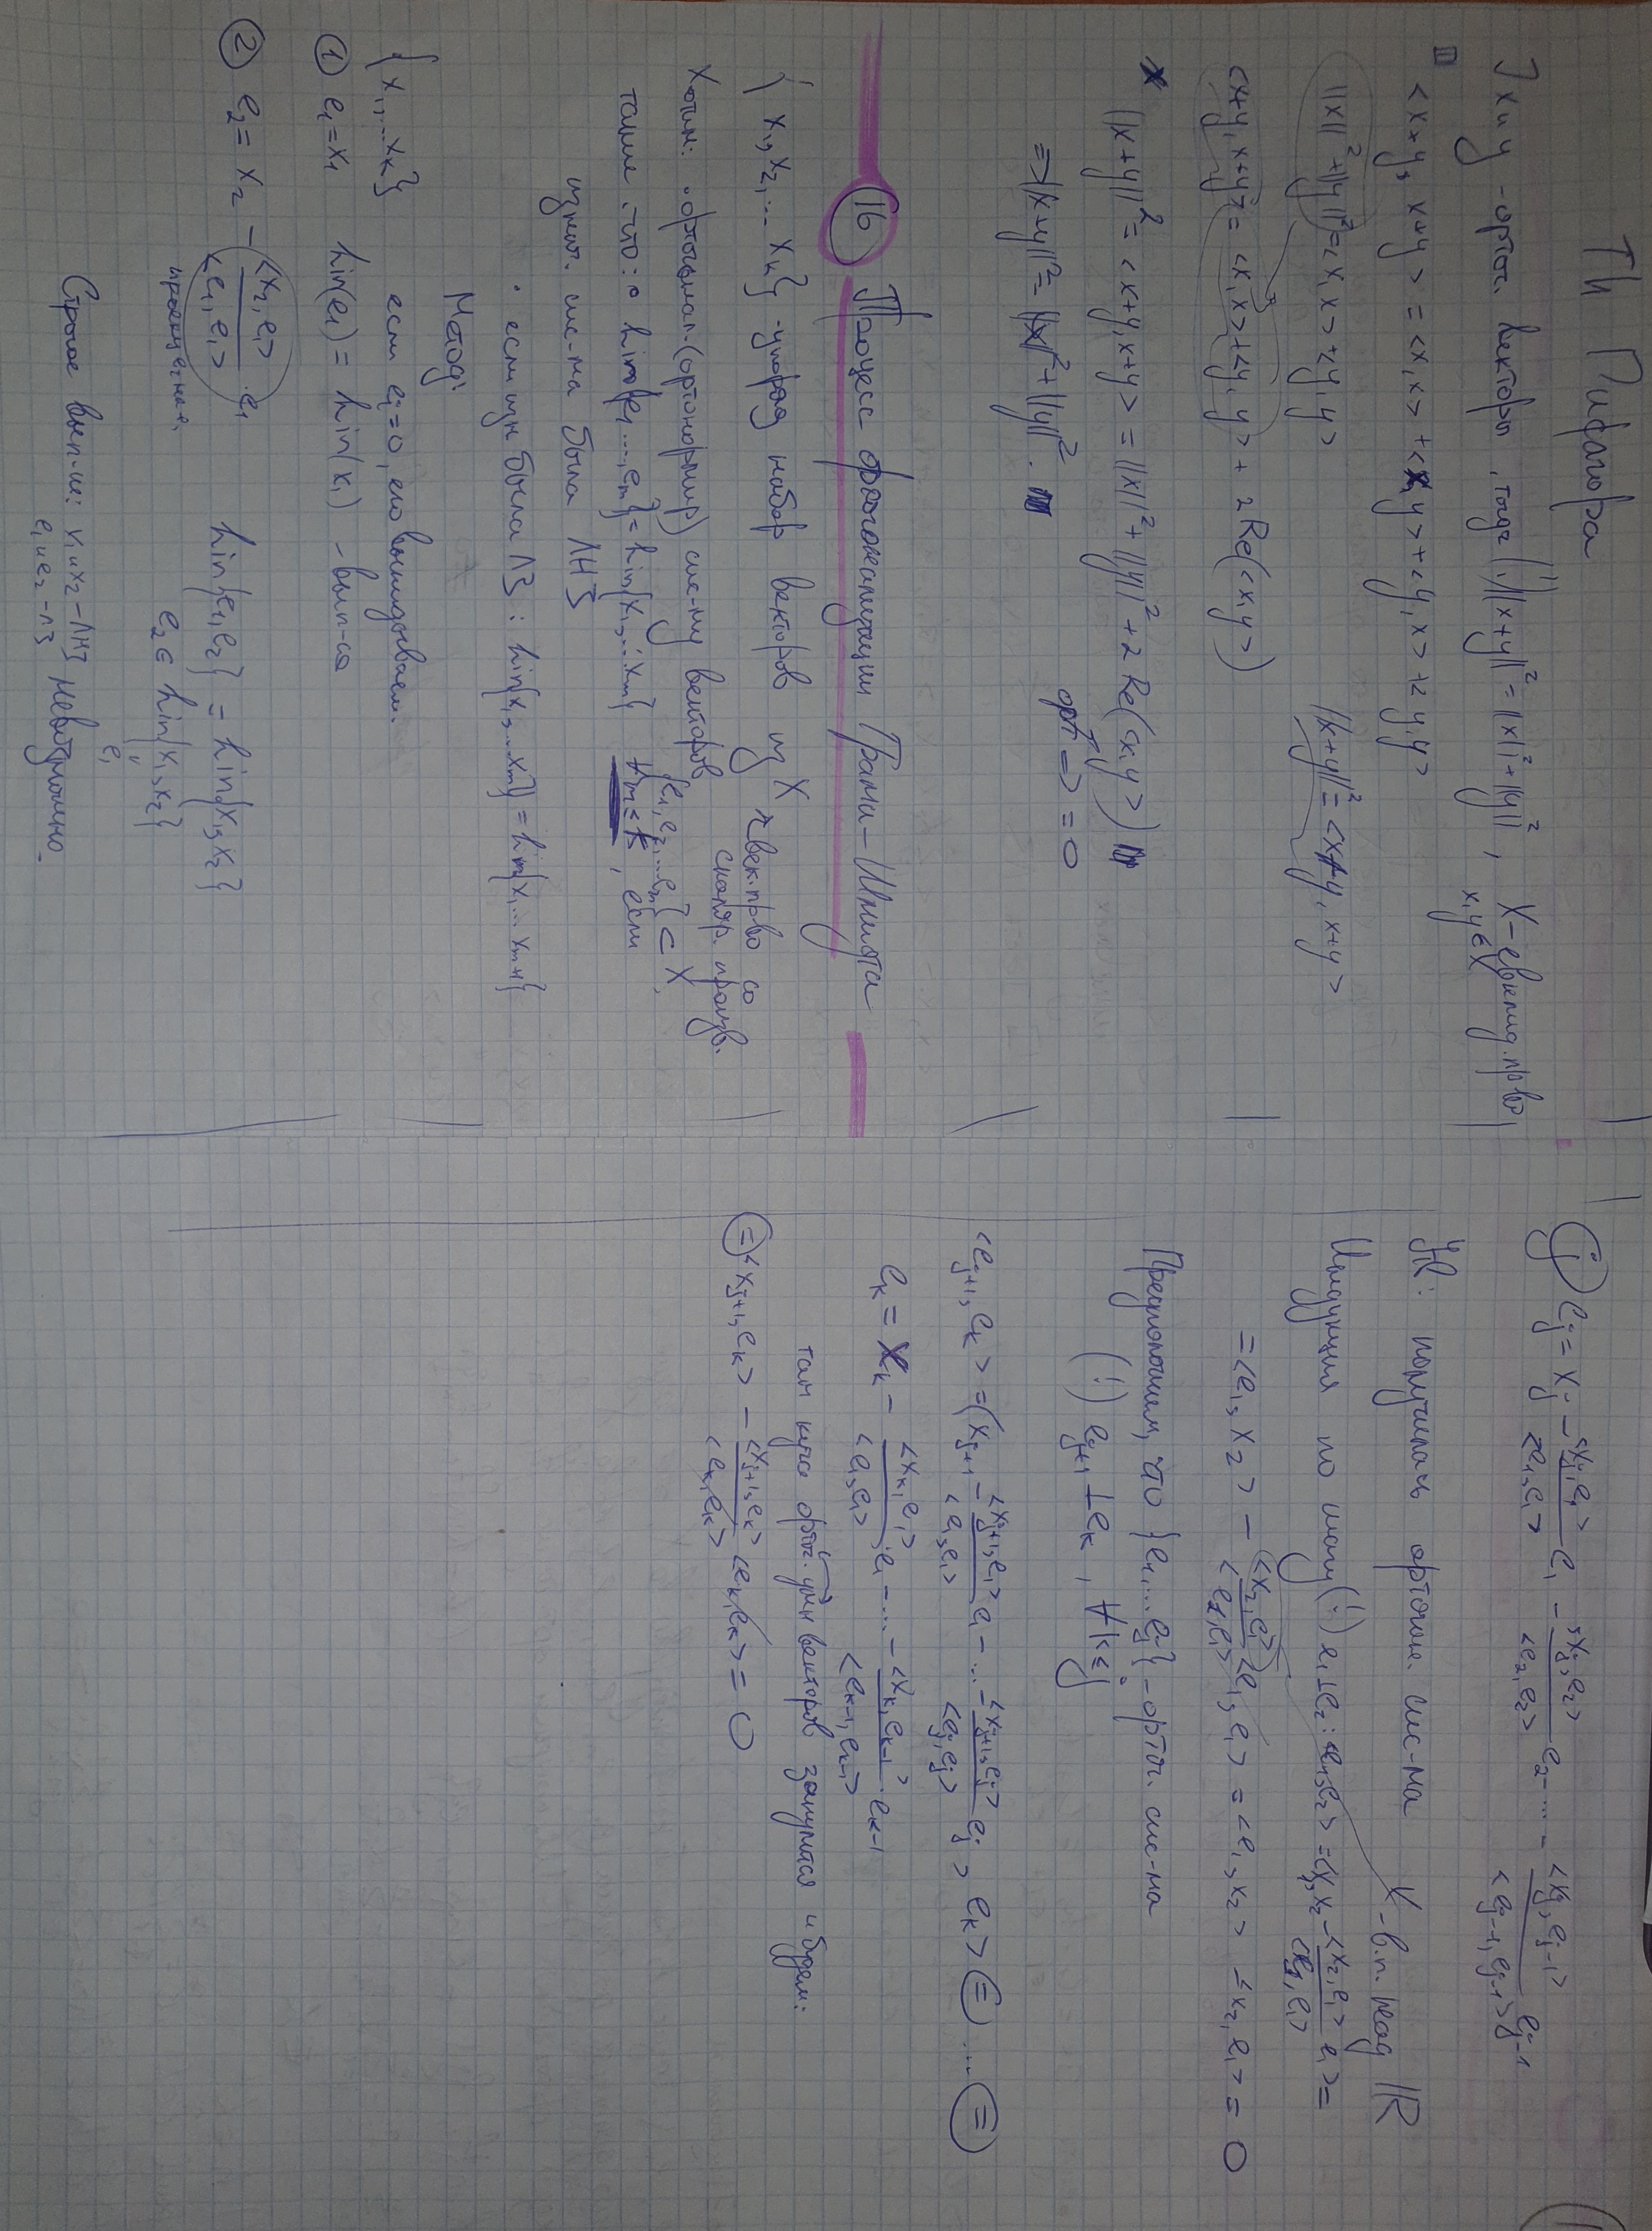 Th Пифагора
] x и y - ортог. векторы, тогда (!) ||x+y||² = ||x||² + ||y||², X - евклид. пр-во
x, y ∈ X
<x+y, x+y> = <x, x> + <x, y> + <y, x> + <y, y>
||x||² + ||y||² = <x, x> + <y, y> ||x+y||² = <x+y, x+y>
<x+y, x+y> = <x, x> + <y, y> + 2 Re(<x, y>)
||x+y||² = <x+y, x+y> = ||x||² + ||y||² + 2 Re(<x, y>)
орт ⇒ = 0
⇒ ||x+y||² = ||x||² + ||y||².
16 Процесс ортогонализации Грама-Шмидта
{x₁, x₂, ... xₖ} - упоряд набор векторов из X
век. пр-во со скаляр. произв.
Хотим: ортогонал. (ортонормир) сис-му векторов {e₁, e₂, ... eₘ} ⊂ X,
такие что: Lin{e₁, ..., eₘ} = Lin{x₁, ... xₘ} ∀m ≤ k, если
изнач. сис-ма была ЛНЗ
• если изн была ЛЗ: Lin{x₁, ... xₘ} = Lin{x₁, ... xₘ₊₁}
Метод:
{x₁, ... xₖ} если eⱼ = 0, его выкидываем.
① e₁ = x₁ Lin(e₁) = Lin(x₁) - вып-со
② e₂ = x₂ - <x₂, e₁>/<e₁, e₁> · e₁ Lin{e₁, e₂} = Lin{x₁, x₂}
e₂ ∈ Lin{x₁, x₂}
e₁
Строгое вып-ие: x₁ и x₂ - ЛНЗ невозможно.
e₁ и e₂ - ЛЗ
ⓙ eⱼ = xⱼ - <xⱼ, e₁>/<e₁, e₁> e₁ - <xⱼ, e₂>/<e₂, e₂> e₂ - ... - <xⱼ, eⱼ₋₁>/<eⱼ₋₁, eⱼ₋₁> eⱼ₋₁
получилась ортогон. сис-ма X - в.п. над ℝ
Индукция по шагу (!) e₁ ⊥ e₂: <e₁, e₂> = <x₁, x₂ - <x₂, e₁>/<e₁, e₁> e₁> =
= <e₁, x₂> - <x₂, e₁>/<e₁, e₁> <e₁, e₁> = <e₁, x₂> - <x₂, e₁> = 0
Предположим, что {e₁, ... eⱼ} - ортог. сис-ма
(!) eⱼ₊₁ ⊥ eₖ, ∀k ≤ j
<eⱼ₊₁, eₖ> = <xⱼ₊₁ - <xⱼ₊₁, e₁>/<e₁, e₁> e₁ - ... - <xⱼ₊₁, eⱼ>/<eⱼ, eⱼ> eⱼ, eₖ> ⊜ ... ⊜
eₖ = xₖ - <xₖ, e₁>/<e₁, e₁> · e₁ - ... - <xₖ, eₖ₋₁>/<eₖ₋₁, eₖ₋₁> · eₖ₋₁
там куча ортог. векторов занулится и будем:
⊜ <xⱼ₊₁, eₖ> - <xⱼ₊₁, eₖ>/<eₖ, eₖ> <eₖ, eₖ> = 0